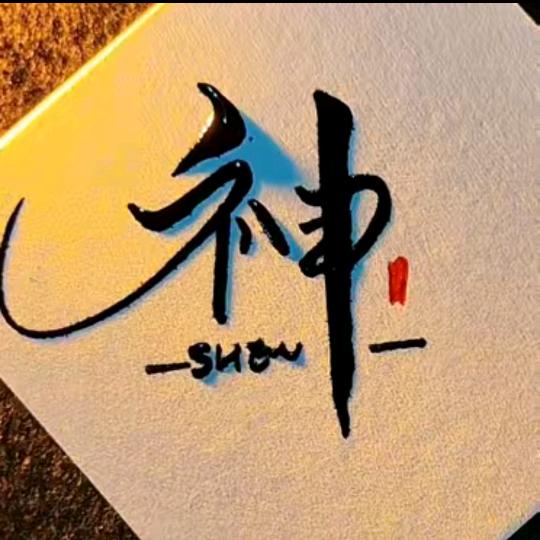 神
—SHEN—